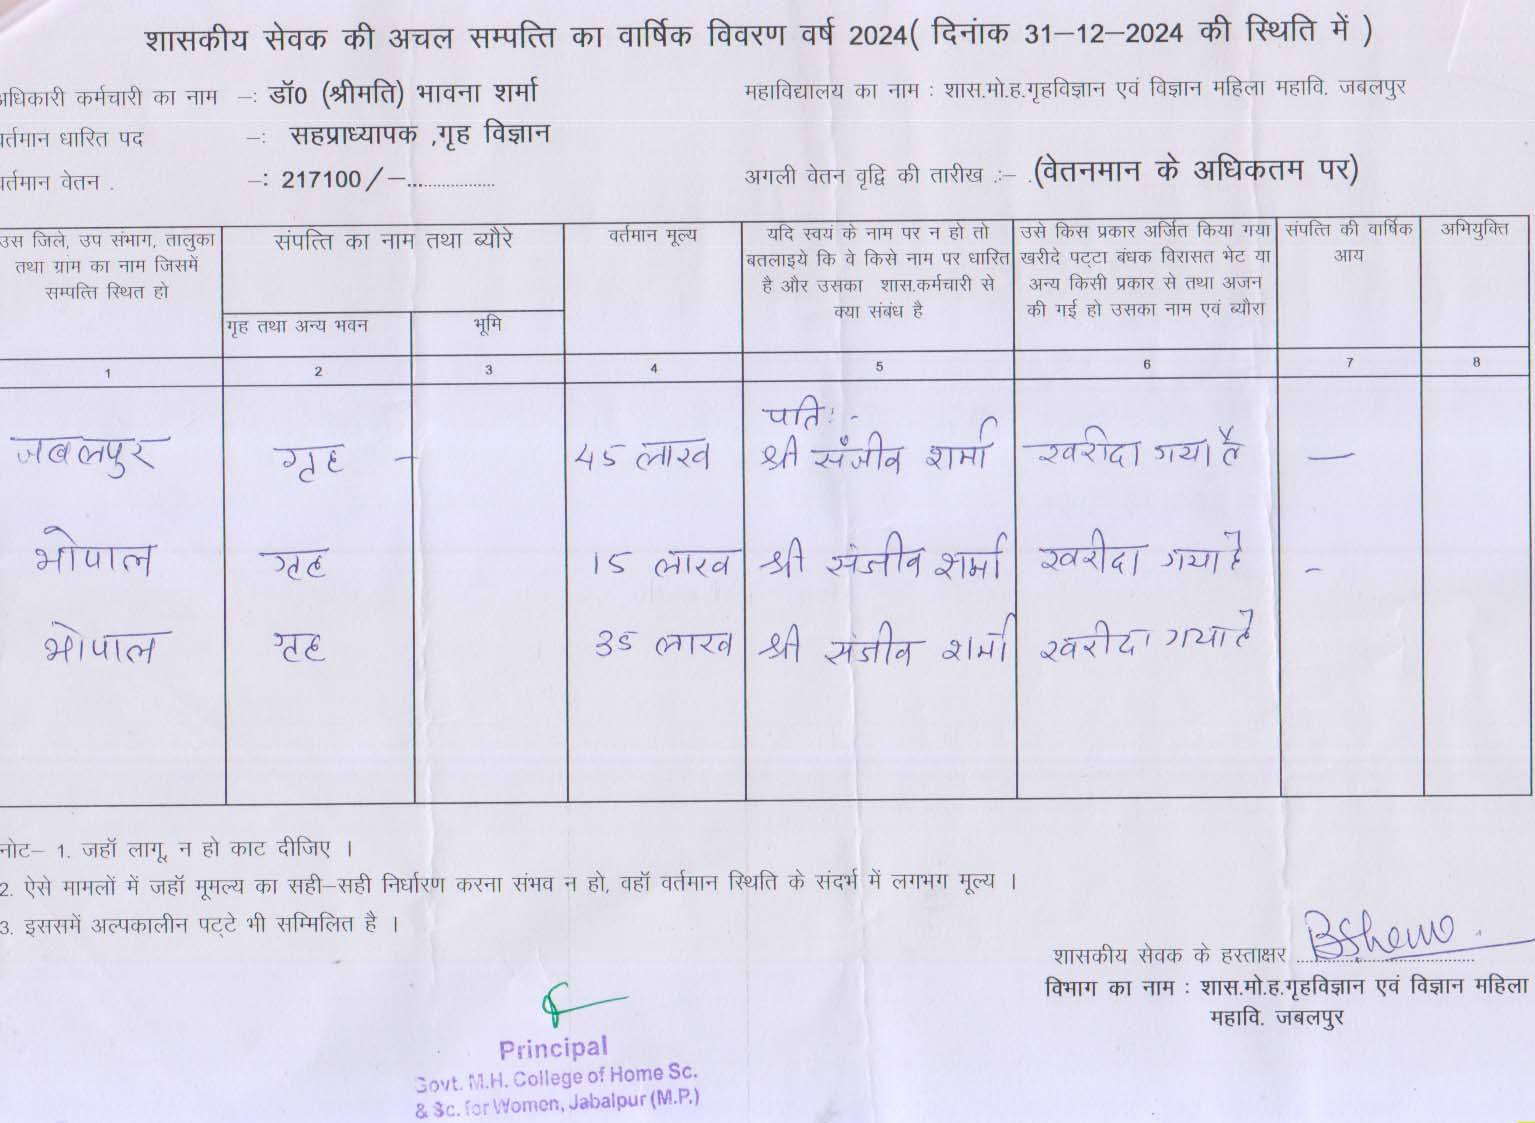 शासकीय सेवक की अचल सम्पत्ति का वार्षिक विवरण वर्ष 2024( दिनांक 31–12–2024 की स्थिति में )
अधिकारी कर्मचारी का नाम –: डॉ0 (श्रीमति) भावना शर्मा
महाविद्यालय का नाम : शास.मो.ह.गृहविज्ञान एवं विज्ञान महिला महावि. जबलपुर
वर्तमान धारित पद –: सहप्राध्यापक ,गृह विज्ञान
वर्तमान वेतन . –: 217100/–...................
अगली वेतन वृद्वि की तारीख :– .(वेतनमान के अधिकतम पर)
उस जिले, उप संभाग, तालुका
तथा ग्राम का नाम जिसमें
सम्पत्ति स्थित हो
संपत्ति का नाम तथा ब्यौरे
गृह तथा अन्य भवन
भूमि
वर्तमान मूल्य
यदि स्वयं के नाम पर न हो तो
बतलाइये कि वे किसे नाम पर धारित
है और उसका शास.कर्मचारी से
क्या संबंध है
उसे किस प्रकार अर्जित किया गया
खरीदे पट्टा बंधक विरासत भेट या
अन्य किसी प्रकार से तथा अजन
की गई हो उसका नाम एवं ब्यौरा
संपत्ति की वार्षिक
आय
अभियुक्ति
1 2 3 4 5 6 7 8
पति:-
जबलपुर गृह – 45 लाख श्री संजीव शर्मा खरीदा गया है —
भोपाल गृह 15 लाख श्री संजीव शर्मा खरीदा गया है -
भोपाल गृह 35 लाख श्री संजीव शर्मा खरीदा गया है
नोट– 1. जहॉ लागू, न हो काट दीजिए ।
2. ऐसे मामलों में जहॉ मूमल्य का सही–सही निर्धारण करना संभव न हो, वहॉ वर्तमान स्थिति के संदर्भ में लगभग मूल्य ।
3. इससमें अल्पकालीन पट्टे भी सम्मिलित है ।
शासकीय सेवक के हस्ताक्षर
विभाग का नाम : शास.मो.ह.गृहविज्ञान एवं विज्ञान महिला
महावि. जबलपुर
Principal
Govt. M.H. College of Home Sc.
& Sc. for Women, Jabalpur (M.P.)